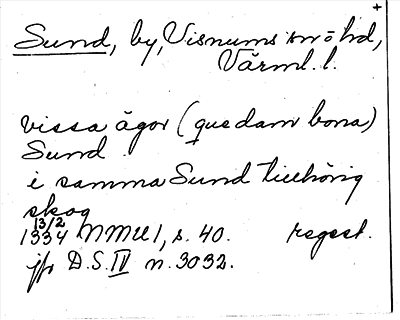 Sund, by, Visnums sn o hd,
Värml. l.
vissa ägor (quedam bona)
Sund.
i samma Sund tillhörig
skog
13/2
1334 MMU 1, s. 40. regest.
jfr D.S. IV n. 3032.